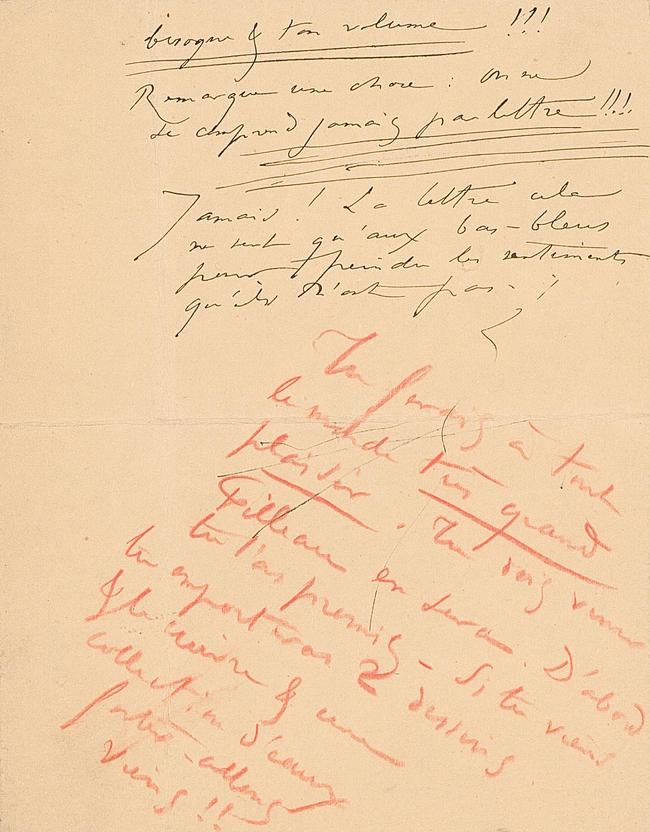 besogne & ton volume !!!
Remarque une chose : on ne
se comprend jamais par lettre !!!
Jamais ! La lettre cela
ne sert qu'aux bas-bleus
pour peindre les sentiments
qu'ils n'ont pas - !
Tu ferais à tout
le monde très grand
plaisir. Tu vois venir
Filleau en sera. D'abord
tu l'as promis - Si tu viens
tu emporteras 2 dessins
& la & une
collection d'eaux
fortes - allons
viens !!